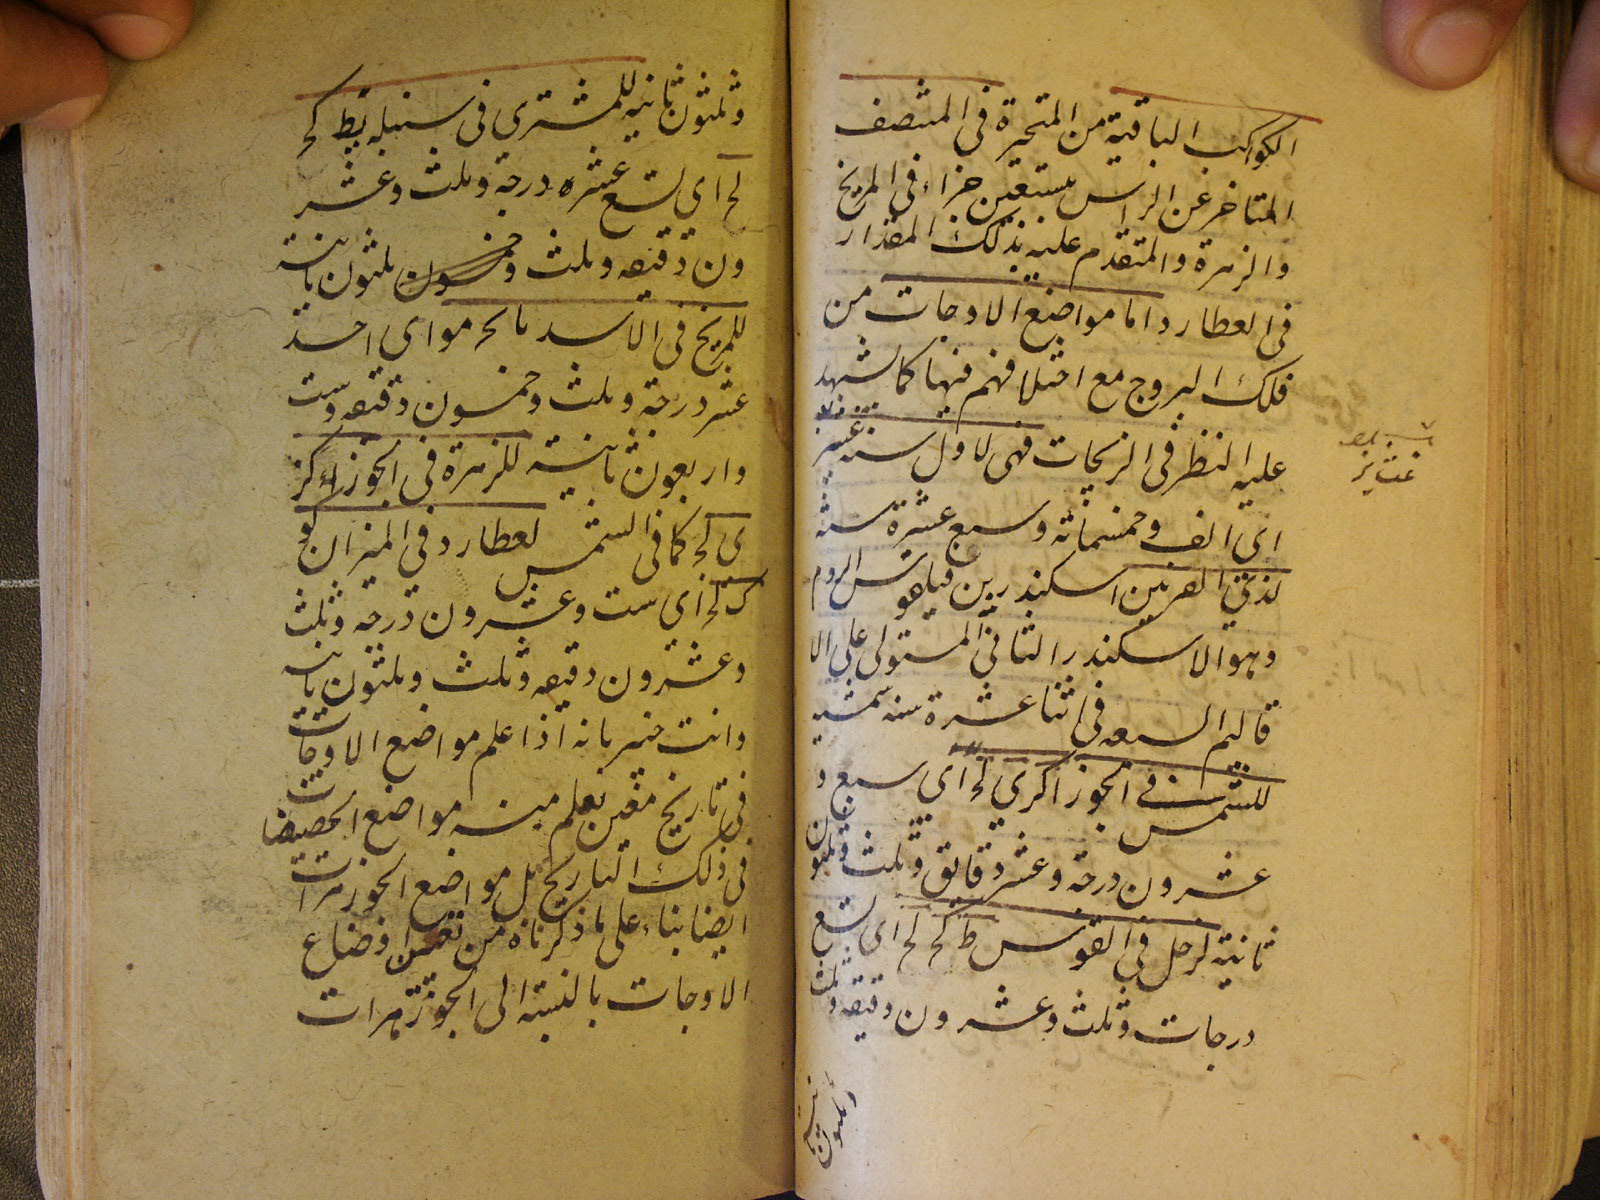 الكواكب الباقية من المتحيرة فى المنتصف
المتاخر عن الراس بستعين جزاء فى المريخ
والزهرة والمتقدم عليه بذلك المقدار
فى العطارد اما مواضع الاوجات من
فلك البروج مع اختلافهم فيها كما يشهد
عليه النظر فى الزيجات فهى لاول سنه
اى الف وخمسمائه وسبع عشرة سنه
لذى القرنين اسكندر بن فيلقوس الروم
وهو الاسكندر الثانى المستولى على الا
قاليم السبعه فى اثنا عشرة سنه شمسيه
للشمس فى الجوزا كزى لح اى سبع و
عشرون درجة وعشر دقايق وثلث وثلثون
ثانية لزحل فى القوس ط كح لح اى تسع
درجات وثلث وعشرون دقيقه وثلث
وثلثون ثانية
وثلثون ثانيه للمشترى فى سنبله يط كح
لح اى تسع عشره درجة وثلث وعشر
ون دقيقه وثلث وخمسون ثلثون ثانية
للمريخ فى الاسد يا نح مو اى احد
عشر درجة وثلث وخمسون دقيقه وست
واربعون ثانية للزهرة فى الجوزاء كز
ى لح كما فى الشمس لعطارد فى الميزان كو
كح لح اى ست وعشرون درجة وثلث
وعشرون دقيقه وثلث وثلثون ثانيه
وانت خبير بانه اذا علم مواضع الاوجات
فى تاريخ معين يعلم منه مواضع الحضيضات
فى ذلك التاريخ بل مواضع الجوزهرات
ايضا بناء على ما ذكرناه من تعين اوضاع
الاوجات بالنسبة الى الجوزهرات